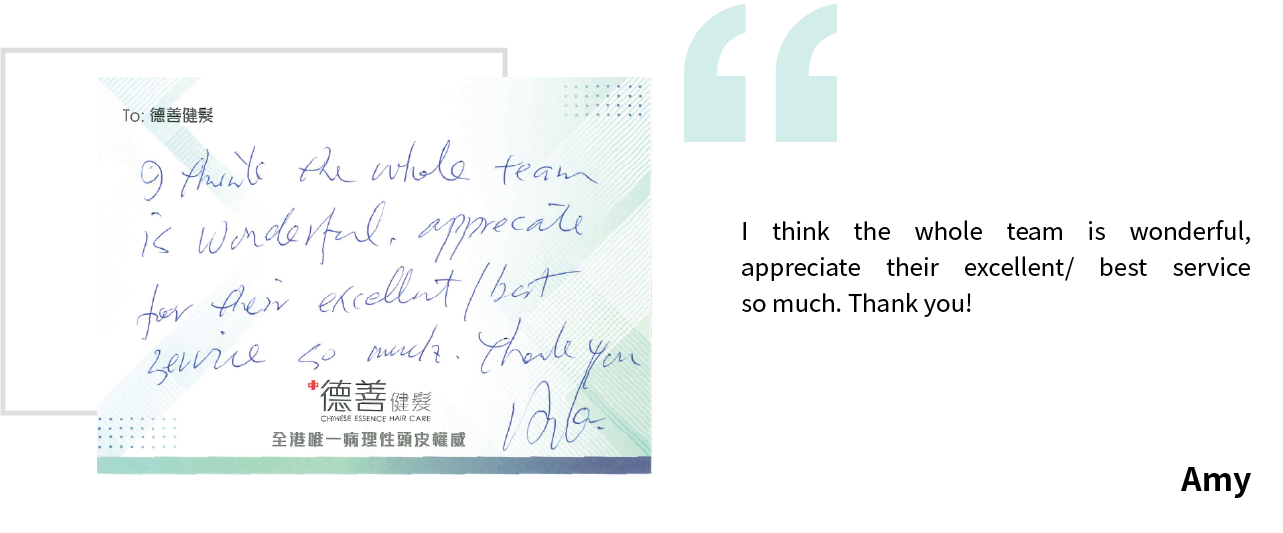 To: 德善健髮
I think the whole team
is wonderful. apprecate
for their excellent/best
service so much. Thank you
德善健髮
CHINESE ESSENCE HAIR CARE
全港唯一病理性頭皮權威
I think the whole team is wonderful,
appreciate their excellent/ best service
so much. Thank you!
Amy